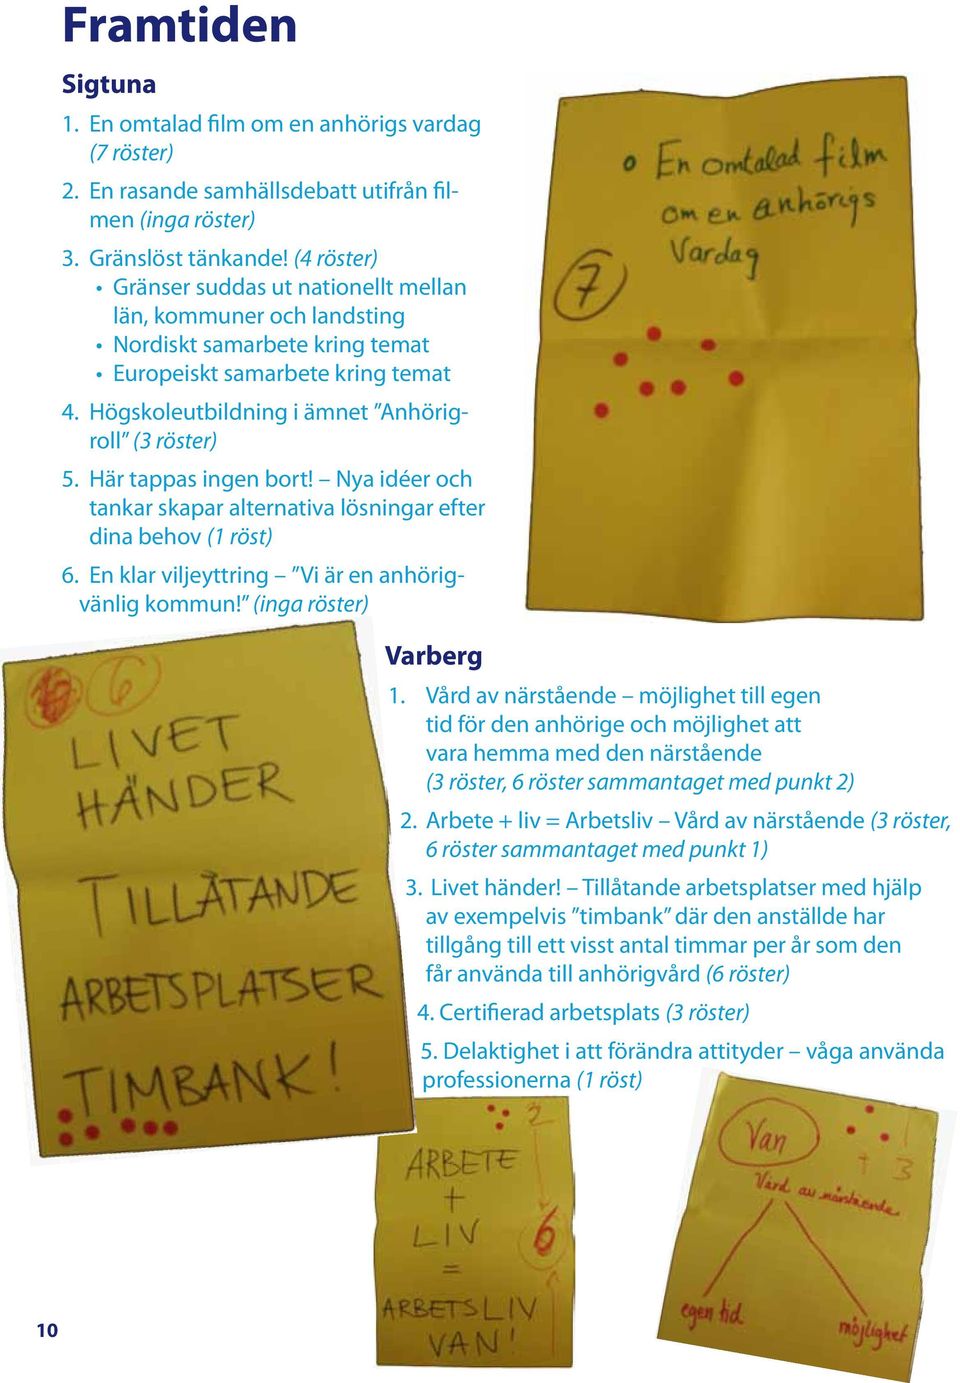 Framtiden
Sigtuna
1. En omtalad film om en anhörigs vardag
(7 röster)
2. En rasande samhällsdebatt utifrån fil-
men (inga röster)
3. Gränslöst tänkande! (4 röster)
• Gränser suddas ut nationellt mellan
län, kommuner och landsting
• Nordiskt samarbete kring temat
• Europeiskt samarbete kring temat
4. Högskoleutbildning i ämnet ”Anhörig-
roll” (3 röster)
5. Här tappas ingen bort! – Nya idéer och
tankar skapar alternativa lösningar efter
dina behov (1 röst)
6. En klar viljeyttring – ”Vi är en anhörig-
vänlig kommun!” (inga röster)
• En omtalad film
om en anhörigs
Vardag
7
6
LIVET
HÄNDER
TILLÅTANDE
ARBETSPLATSER
TIMBANK!
Varberg
1. Vård av närstående – möjlighet till egen
tid för den anhörige och möjlighet att
vara hemma med den närstående
(3 röster, 6 röster sammantaget med punkt 2)
2. Arbete + liv = Arbetsliv – Vård av närstående (3 röster,
6 röster sammantaget med punkt 1)
3. Livet händer! – Tillåtande arbetsplatser med hjälp
av exempelvis ”timbank” där den anställde har
tillgång till ett visst antal timmar per år som den
får använda till anhörigvård (6 röster)
4. Certifierad arbetsplats (3 röster)
5. Delaktighet i att förändra attityder – våga använda
professionerna (1 röst)
2
ARBETE
+
LIV
6
=
ARBETSLIV
VAN!
Van
1
+ 3
Vård av närstående
egen tid
möjlighet
10